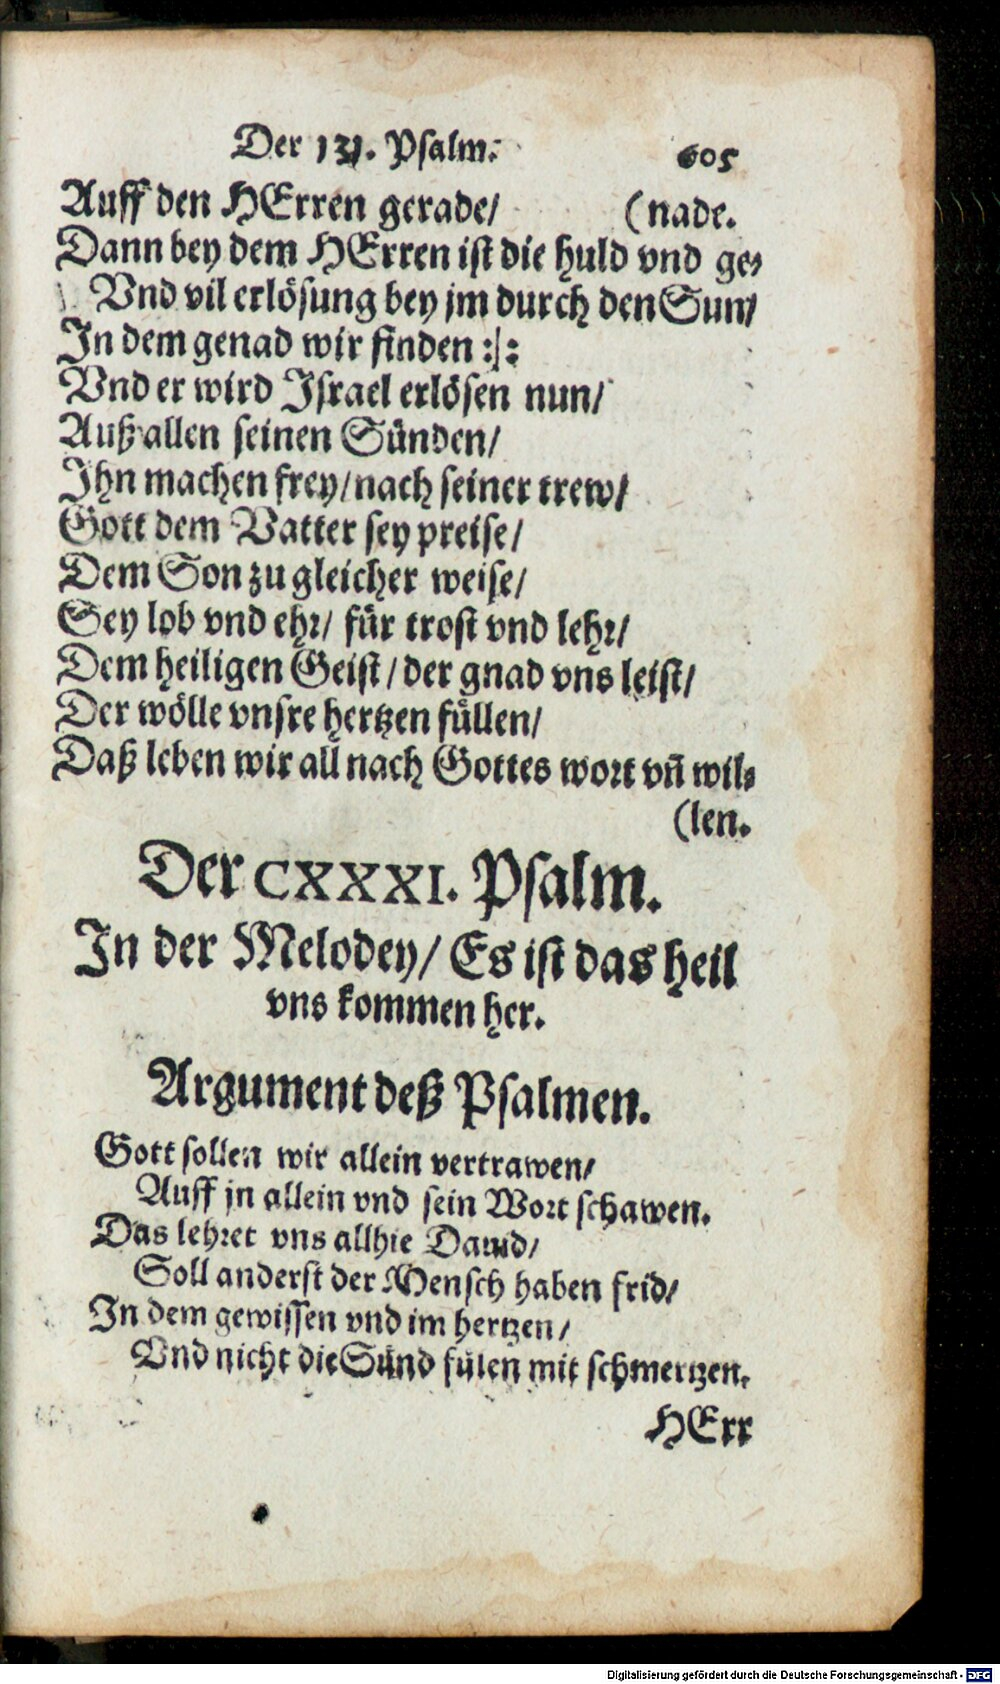 Der 131. Psalm. 605
Auff den HErren gerade/ (nade.
Dann bey dem HErren ist die huld vnd ge-
Vnd vil erlösung bey jm durch den Sun/
In dem genad wir finden :|:
Vnd er wird Israel erlösen nun/
Auß allen seinen Sünden/
Ihn machen frey/ nach seiner trew/
Gott dem Vatter sey preise/
Dem Son zu gleicher weise/
Sey lob vnd ehr/ für trost vnd lehr/
Dem heiligen Geist/ der gnad vns leist/
Der wölle vnsre hertzen füllen/
Daß leben wir all nach Gottes wort vñ wil-
(len.
Der CXXXI. Psalm.
In der Melodey/ Es ist das heil
vns kommen her.
Argument deß Psalmen.
Gott sollen wir allein vertrawen/
Auff jn allein vnd sein Wort schawen.
Das lehret vns allhie Dauid/
Soll anderst der Mensch haben frid/
In dem gewissen vnd im hertzen/
Vnd nicht die Sünd fülen mit schmertzen.
HErr
Digitalisierung gefördert durch die Deutsche Forschungsgemeinschaft - DFG